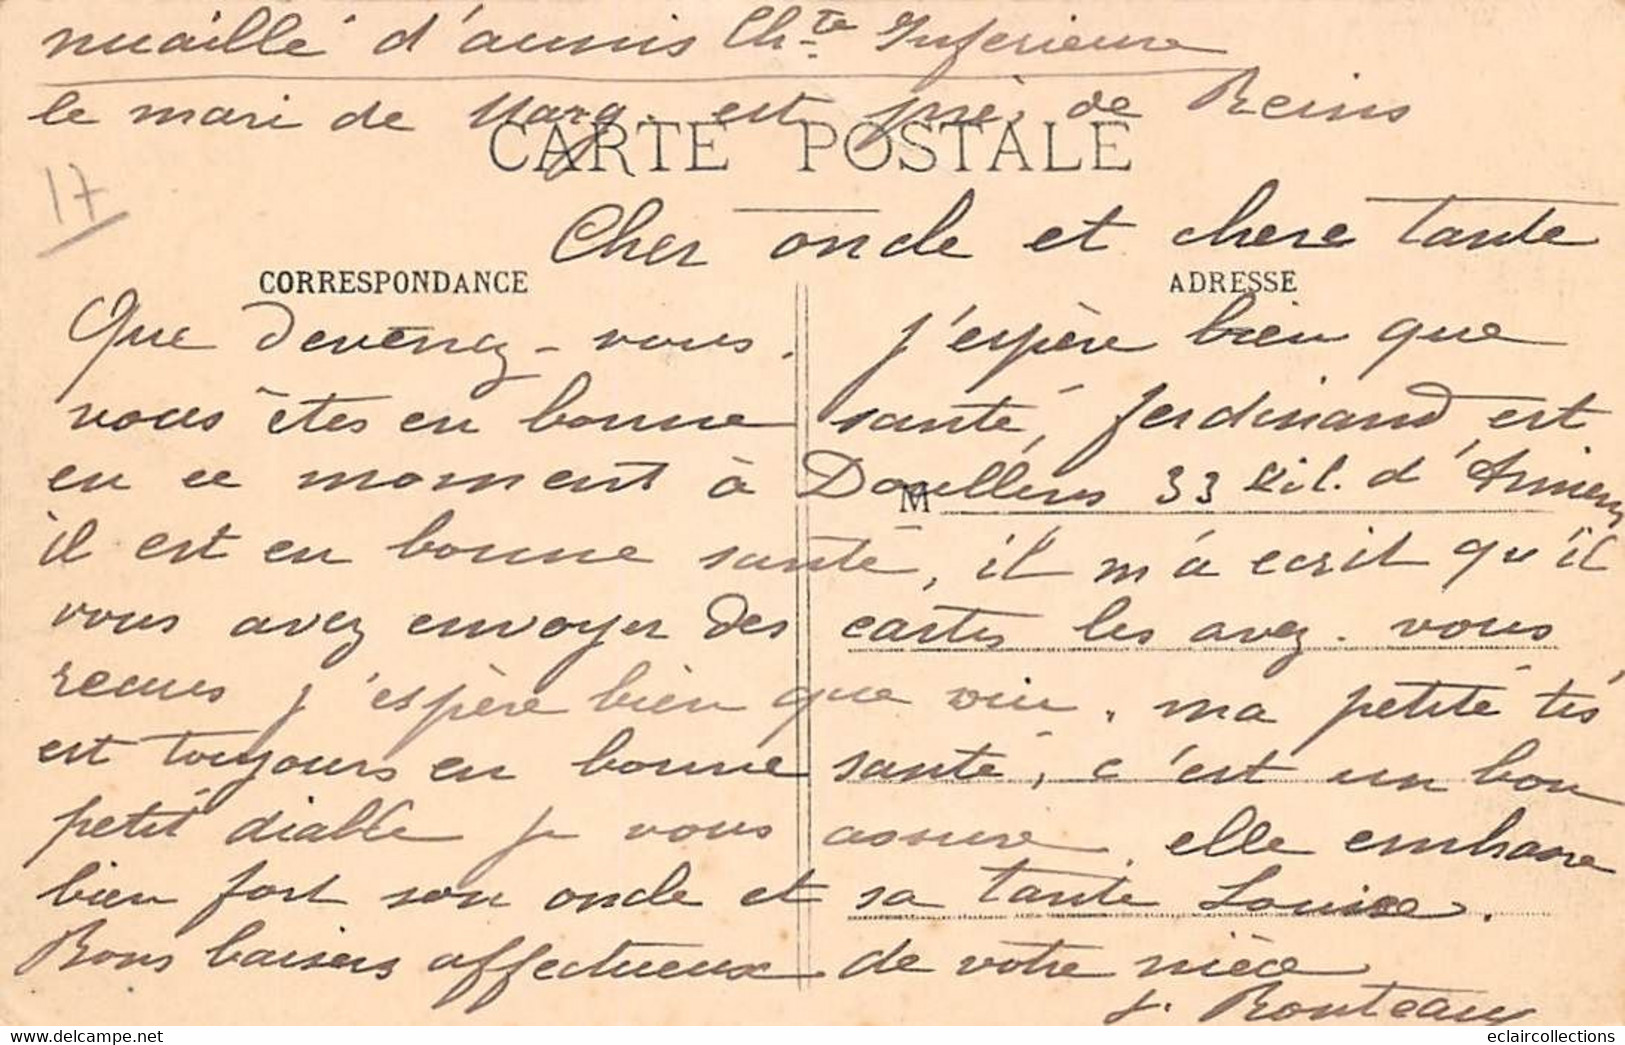 nuaillé d'aunis Ch.te Inferieure
le mari de Marg. est près de Reins
CARTE POSTALE
17
Cher oncle et chere tante
CORRESPONDANCE ADRESSE
Que devenez-vous. j'espère bien que
vous êtes en bonne santé, ferdinand, est
en ce moment à Doullens 33 kil. d'Amiens
M
il est en bonne santé, il m'a ecrit qu'il
vous avez envoyer des cartes les avez-vous
recues j'espère bien que oui. ma petite
est toujours en bonne santé, c'est un bon
petit diable je vous assure elle embrasse
bien fort son oncle et sa tante Louise.
Bons baisers affectueux de votre nièce
Bouteaux
eclaircollections
www.delcampe.net